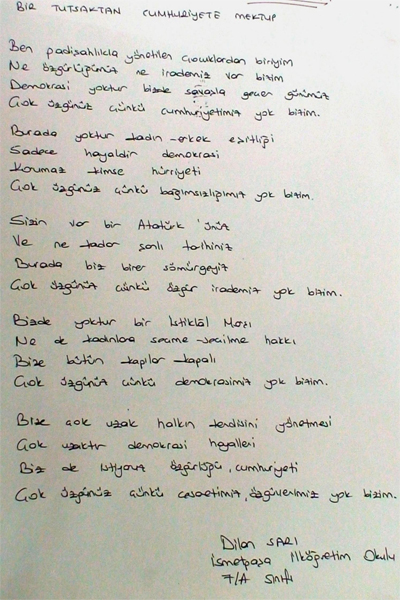 BİR TUTSAKTAN CUMHURİYETE MEKTUP
Ben padişahlıkla yönetilen çocuklardan biriyim
Ne özgürlüğümüz ne irademiz var bizim
Demokrasi yoktur bizde savaşla geçer günümüz
Çok üzgünüz çünkü cumhuriyetimiz yok bizim.
Burada yoktur kadın-erkek eşitliği
Sadece hayaldir demokrasi
Korumaz kimse hürriyeti
Çok üzgünüz çünkü bağımsızlığımız yok bizim.
Sizin var bir Atatürk'ünüz
Ve ne kadar şanlı tarihiniz
Burada biz birer sömürgeyiz
Çok üzgünüz çünkü özgür irademiz yok bizim.
Bizde yoktur bir İstiklâl Marşı
Ne de kadınlara seçme-seçilme hakkı
Bize bütün kapılar kapalı
Çok üzgünüz çünkü demokrasimiz yok bizim.
Bize çok uzak halkın kendisini yönetmesi
Çok uzaktır demokrasi hayalleri
Biz de istiyoruz özgürlüğü, cumhuriyeti
Çok üzgünüz çünkü cesaretimiz, özgüvenimiz yok bizim.
Dilan SARI
İsmetpaşa İlköğretim Okulu
7/A sınıfı